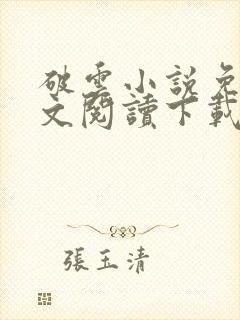 破雲小說免
文閱讀下載
張玉清